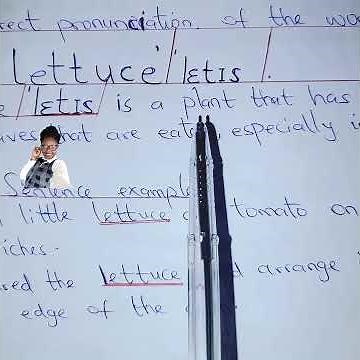 rect pronunciation of the wo
Lettuce /'lɛtɪs/.
/'lɛtɪs/ is a plant that has
aves that are eate, especially i
Sentence example
little lettuce tomato on
iches.
red the lettuce d arrange
edge of the